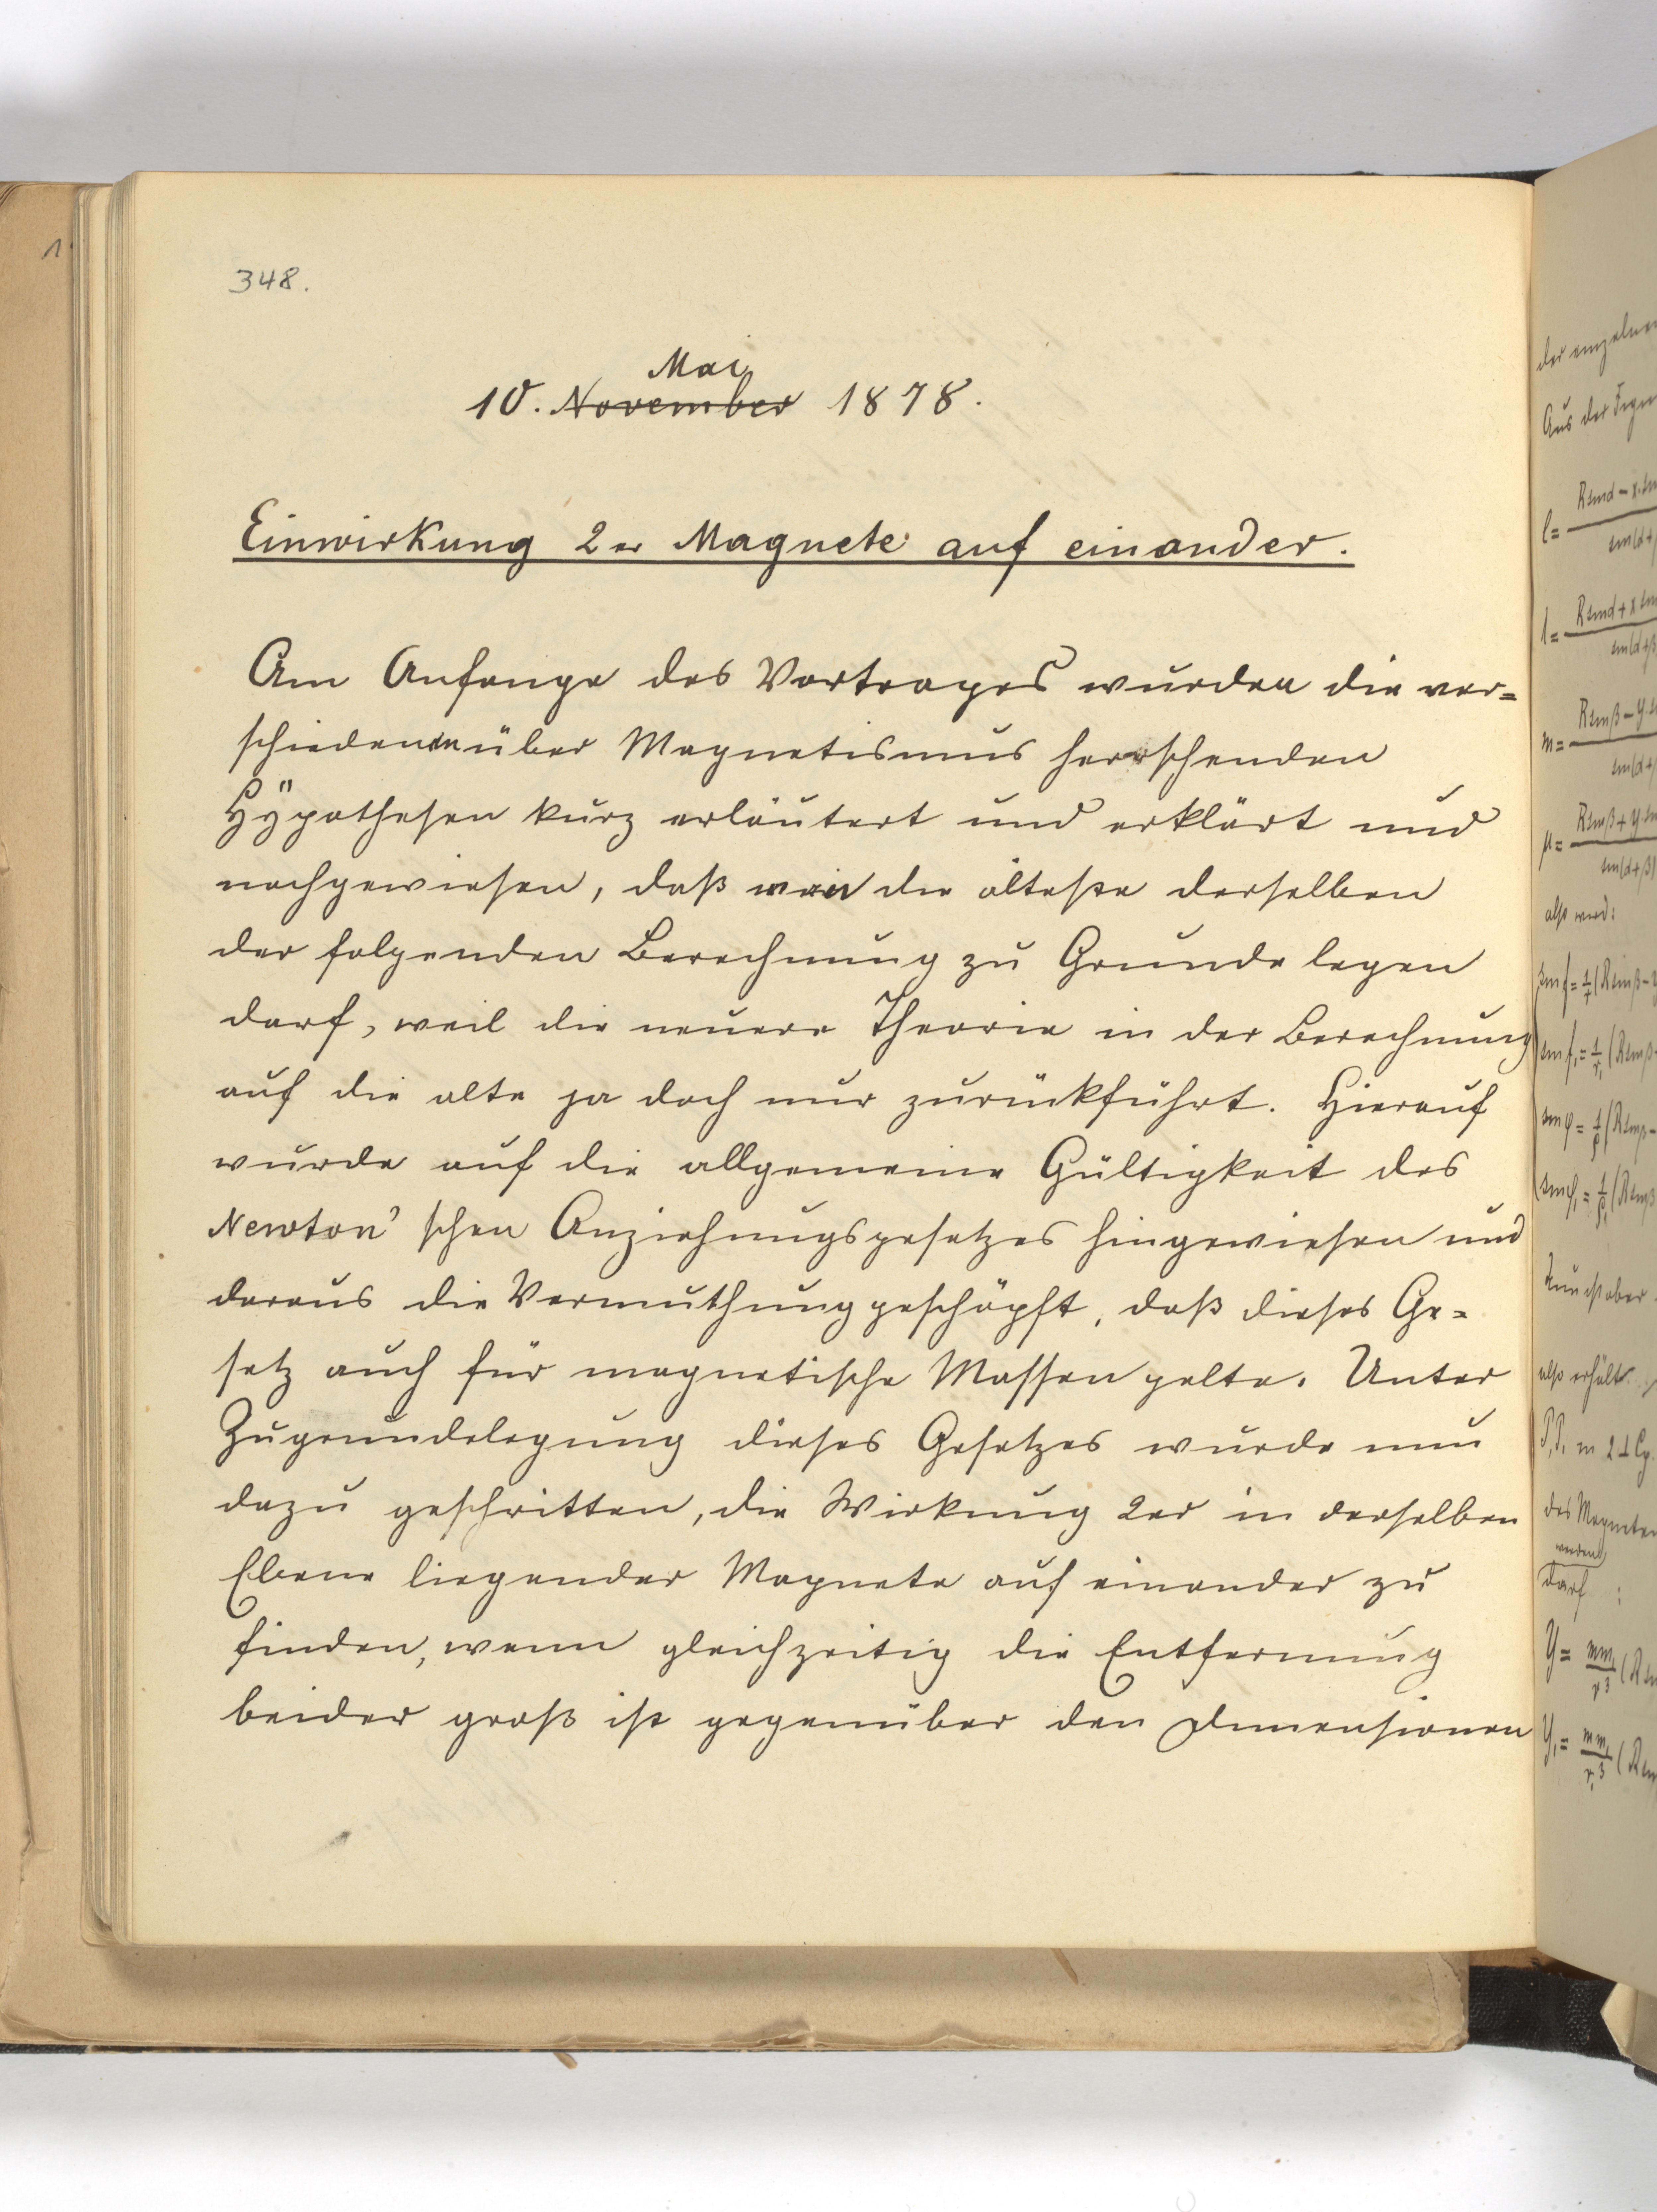 348.
Mai
10. November 1878.
Einwirkung 2er Magnete auf einander.
Am Anfange des Vortrages wurden die ver=
schiedenen über Magnetismus herrschenden
Hÿpothesen kurz erläutert und erklärt und
nachgewiesen, daß man die älteste derselben
der folgenden Berechnung zu Grunde legen
darf, weil die neuere Theorie in der Berechnung
auf die alte ja doch nur zurückführt. Hierauf
wurde auf die allgemeine Gültigkeit des
Newton'schen Anziehungsgesetzes hingewiesen und
daraus die Vermuthung geschöpft, daß dieses Ge=
setz auch für magnetische Massen gelte. Unter
Zugrundelegung dieses Gesetzes wurde nun
dazu geschritten, die Wirkung 2er in derselben
Ebene liegender Magnete auf einander zu
finden, wenn gleichzeitig die Entfernung
beider groß ist gegenüber den Dimensionen
der einzelnen
Aus der
also wird:
also erhält
des Magneten
werden
darf :